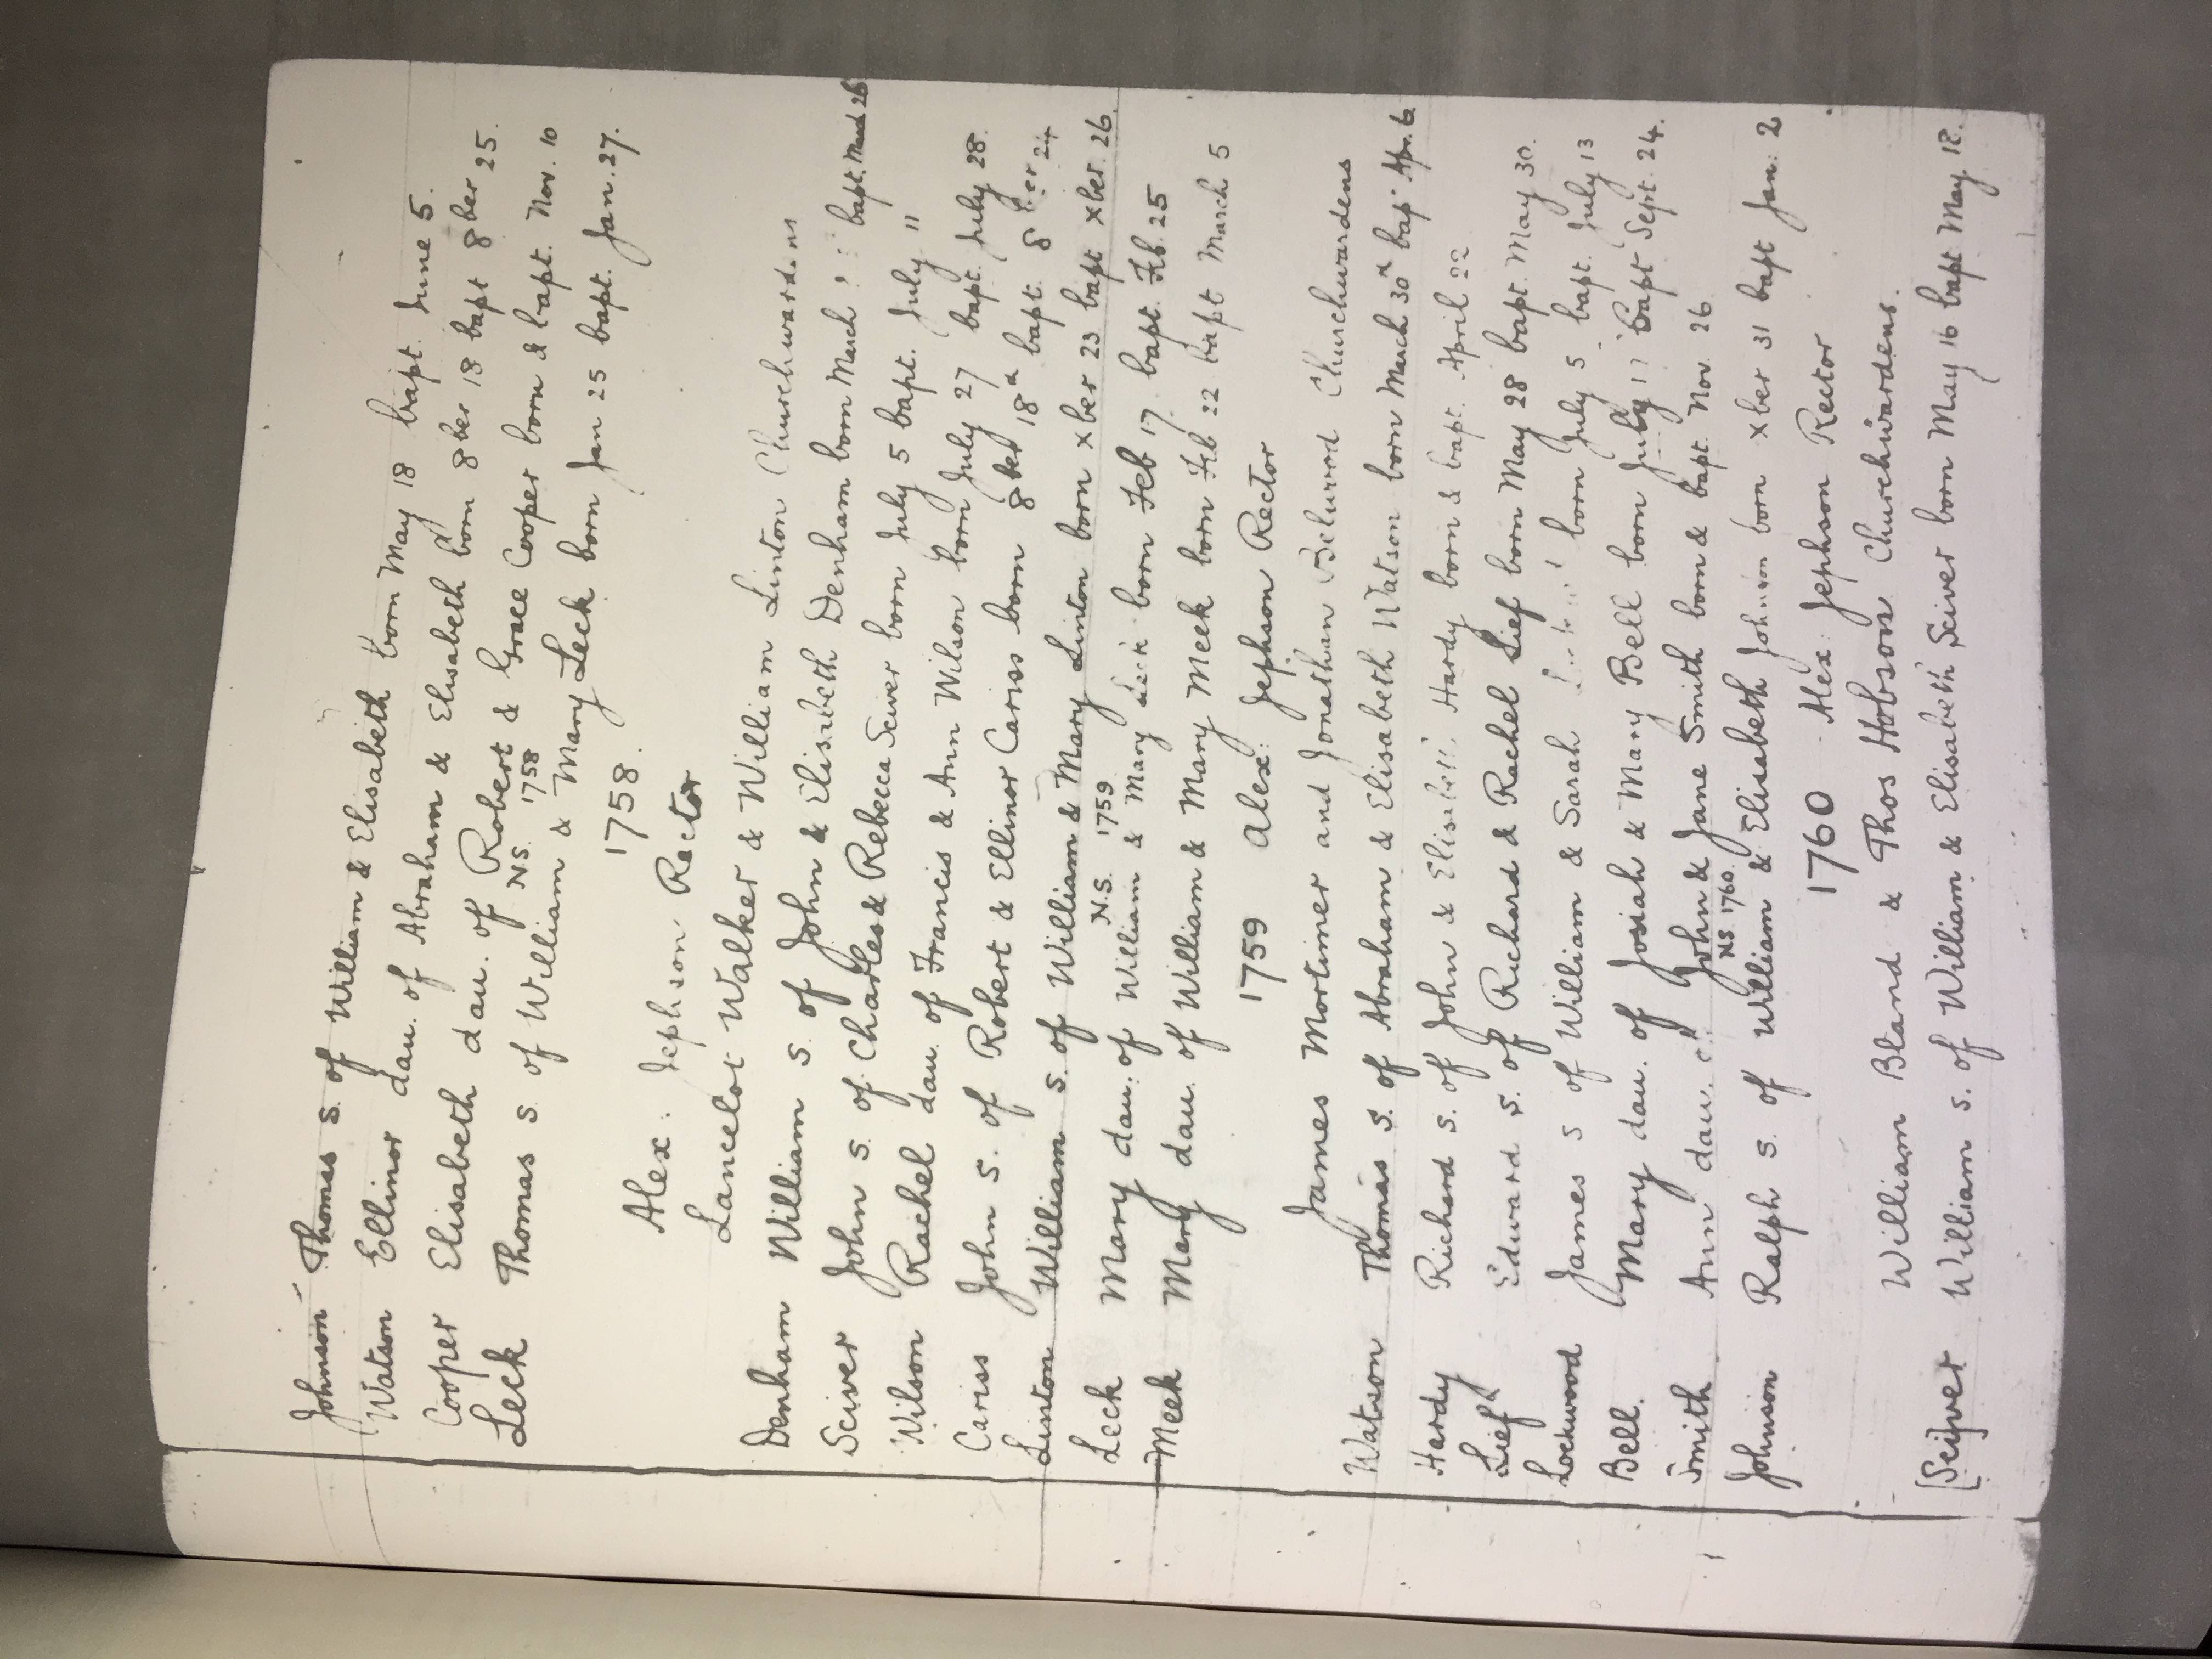 Johnson Thomas s. of William & Elisabeth born May 18 bapt. June 5.
Watson Ellinor dau. of Abraham & Elisabeth born 8ber 18 bapt 8ber 25.
Cooper Elisabeth dau. of Robert & Grace Cooper born & bapt. Nov. 10
N.S. 1758
Leck Thomas s of William & Mary Leck born Jan 25 bapt. Jan. 27.
1758.
Alex. Jephson Rector
Lancelot Walker & William Linton Churchwardens
Denham William s. of John & Elisabeth Denham born March bapt. March 26
Sciver John s. of Charles & Rebecca Sciver born July 5 bapt. July 11
Wilson Rachel dau. of Francis & Ann Wilson born July 27 bapt. July 28.
Cariss John s. of Robert & Ellinor Cariss born 8ber 18th bapt. 8ber 24
Linton William s. of William & Mary Linton born xber 23 bapt xber. 26
N.S. 1759
Leck Mary dau. of William & Mary Leck born Feb 17. bapt. Feb. 25
Meek Mary dau. of William & Mary Meek born Feb 22 bapt March 5
1759 Alex: Jephson Rector
James Mortimer and Jonathan Belwood Churchwardens
Watson Thomas s. of Abraham & Elisabeth Watson born March 30th bap. Apr. 6.
Hardy Richard s. of John & Elisabeth Hardy born & bapt. April 22
Lief Edward s. of Richard & Rachel Lief born May 28 bapt. May 30.
Lockwood James s of William & Sarah born July 5 bapt. July 13
Bell. Mary dau. of Josiah & Mary Bell born July 17 bapt Sept. 24.
Smith Ann dau. of John & Jane Smith born & bapt. Nov. 26
NS. 1760.
Johnson Ralph s. of William & Elisabeth Johnson born xber 31 bapt Jan: 2
1760 Alex: Jephson Rector
William Bland & Thos Hobson Churchwardens.
[Sciver William s. of William & Elisabeth Sciver born May 16 bapt May 18.